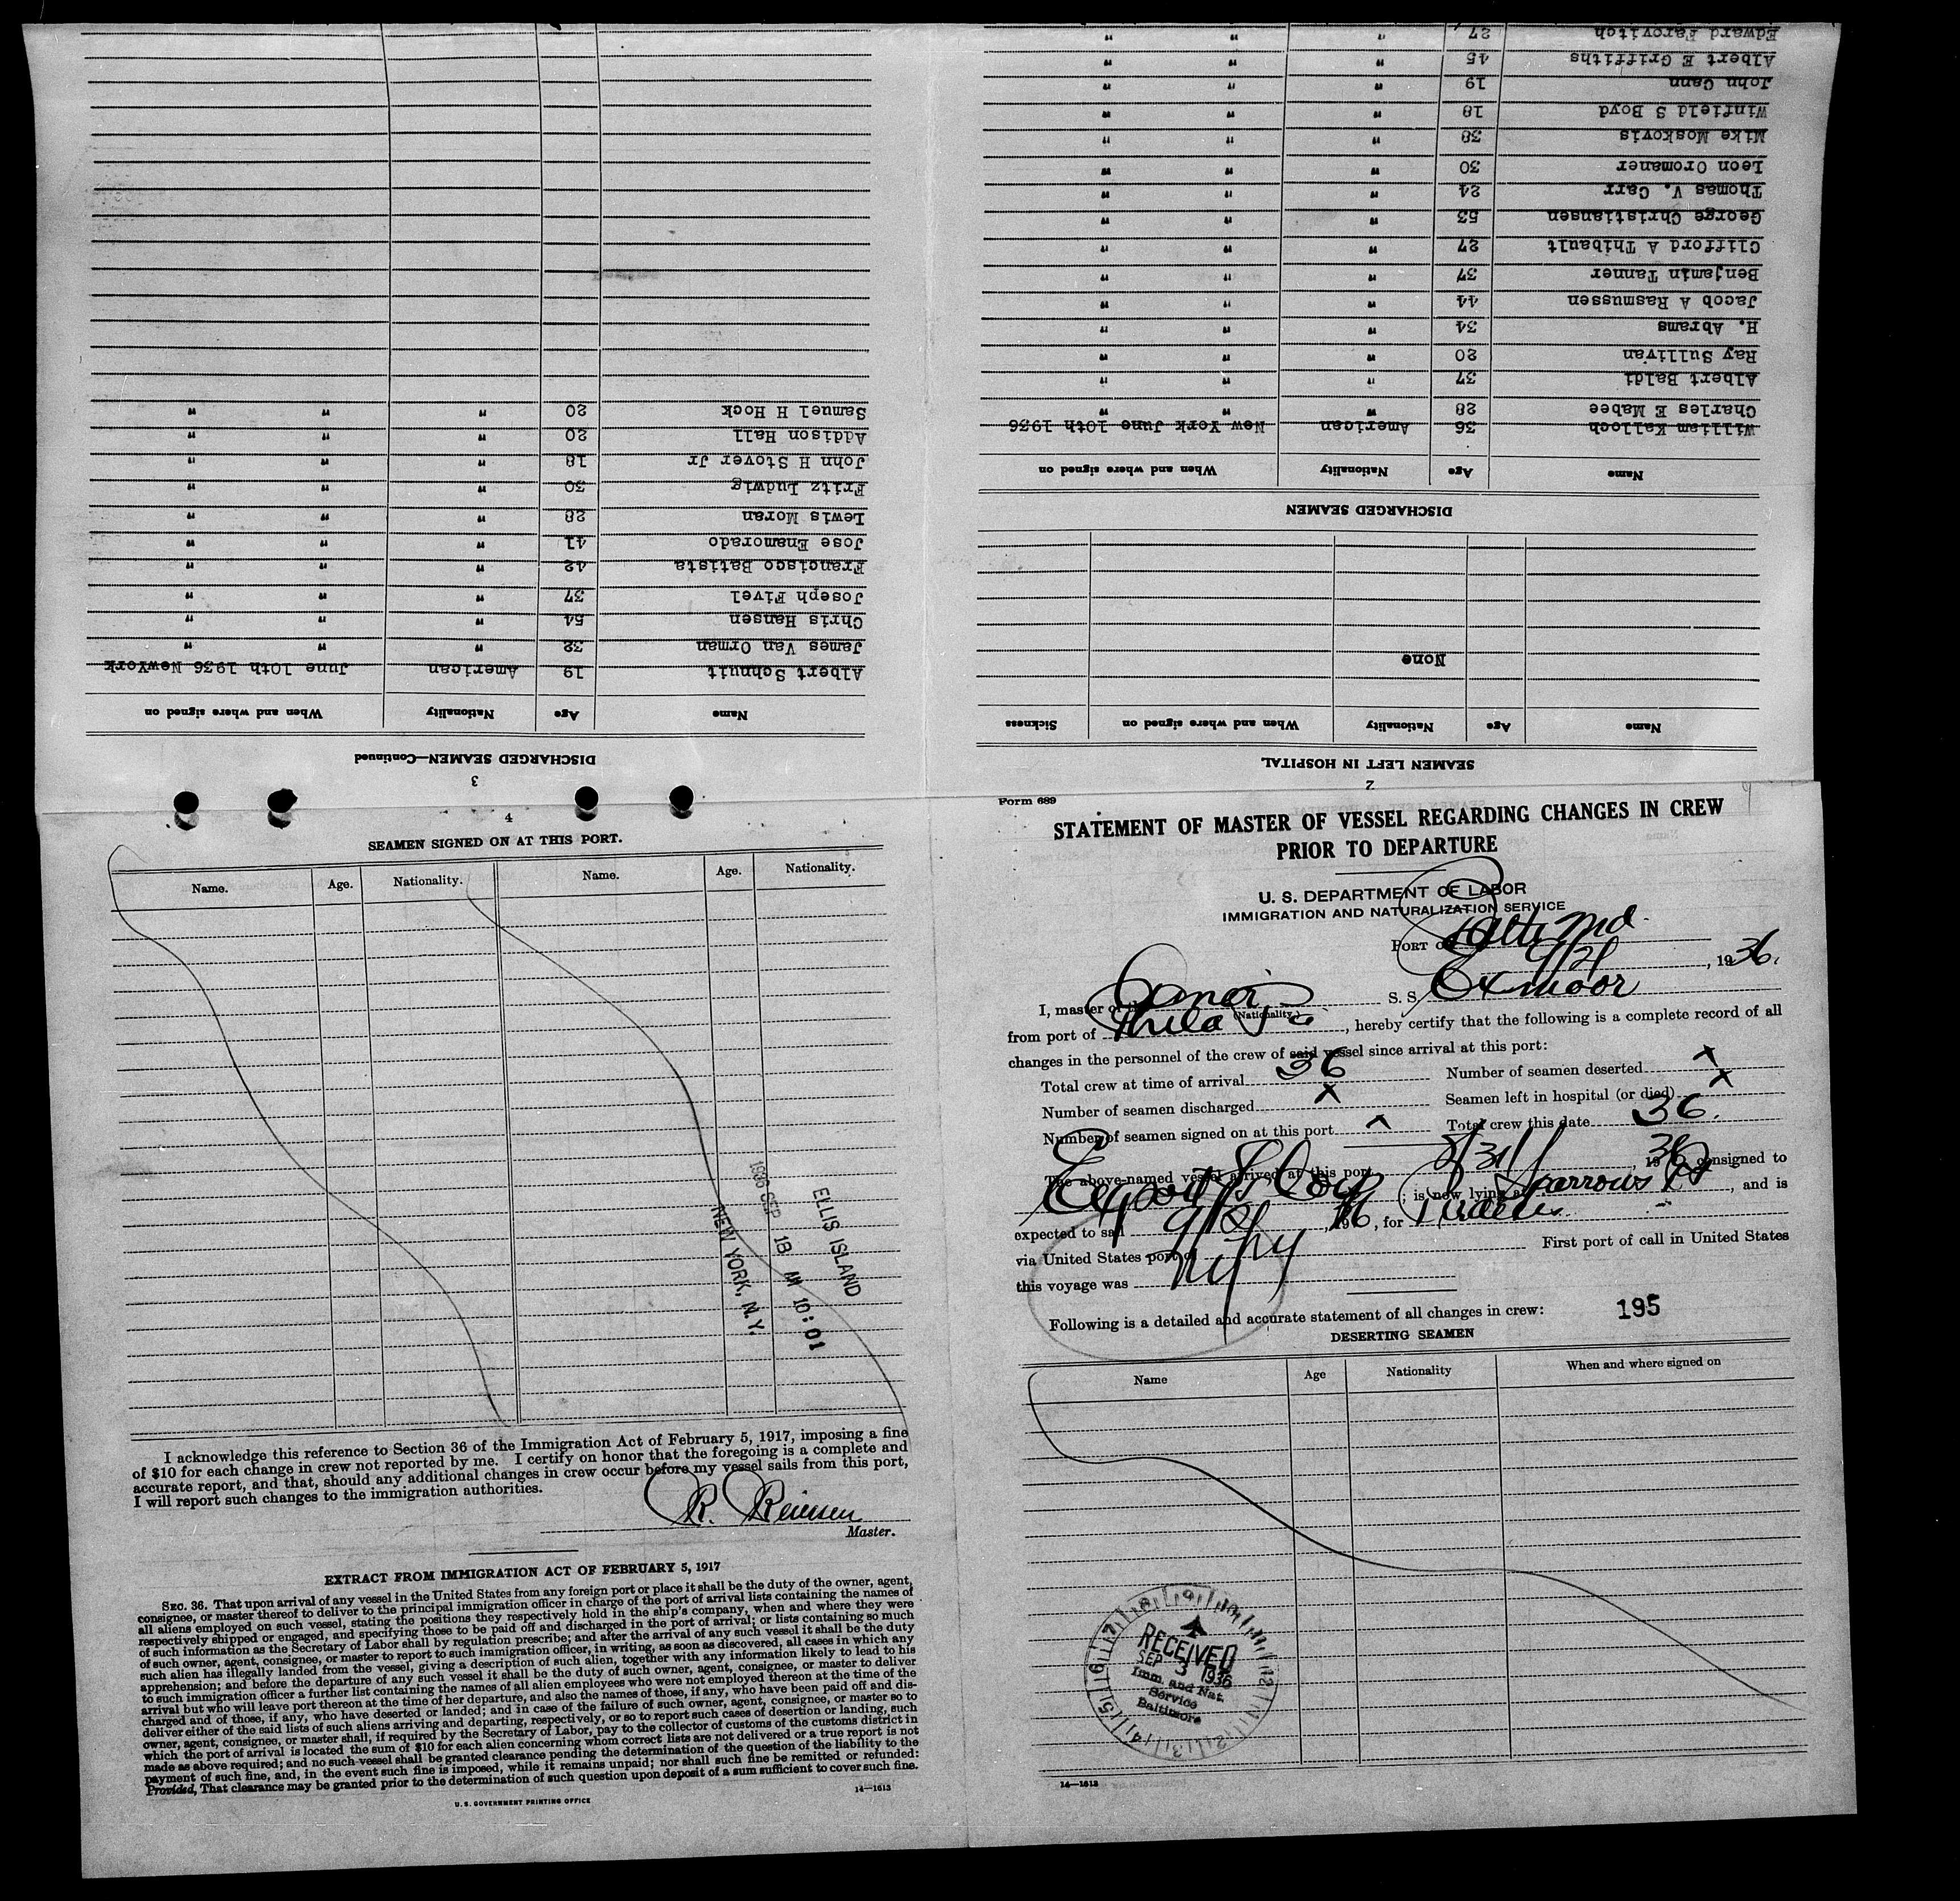 Form 689
STATEMENT OF MASTER OF VESSEL REGARDING CHANGES IN CREW
PRIOR TO DEPARTURE
U. S. DEPARTMENT OF LABOR
IMMIGRATION AND NATURALIZATION SERVICE
PORT OF Balto Md.
, 1936.
I, master of the Amer. (Nationality.) S. S. Exmoor
from port of Phila Pa, hereby certify that the following is a complete record of all
changes in the personnel of the crew of said vessel since arrival at this port:
Total crew at time of arrival 36 Number of seamen deserted x
Number of seamen discharged x Seamen left in hospital (or died) x
Number of seamen signed on at this port x Total crew this date 36.
The above-named vessel arrived at this port 8/31, 1936, consigned to
Export S. S. Corp; is now lying at Sparrows Pt, and is
expected to sail , 1936, for
via United States port of First port of call in United States
this voyage was NY
Following is a detailed and accurate statement of all changes in crew: 195
DESERTING SEAMEN
Name Age Nationality When and where signed on
RECEIVED
SEP 3 1936
Imm. and Nat.
Service
Baltimore
14—1613
2
SEAMEN LEFT IN HOSPITAL
Name Age Nationality When and where signed on Sickness
None
DISCHARGED SEAMEN
Name Age Nationality When and where signed on
William Kalloch 36 American New York June 10th 1936
Charles E Mabee 28 " " "
Albert Baldi 37 " " "
Ray Sullivan 20 " " "
H. Abrams 34 " " "
Jacob A Rasmussen 44 " " "
Benjamin Tanner 37 " " "
Clifford A Thibault 27 " " "
George Christiansen 53 " " "
Thomas V. Carr 24 " " "
Leon Oromaner 30 " " "
Mike Moskovis 38 " " "
Winfield S Boyd 18 " " "
John Cann 19 " " "
Albert E Griffiths 45 " " "
Edward Farovitch 27 " " "
3
DISCHARGED SEAMEN—Continued
Name Age Nationality When and where signed on
Albert Schnuit 19 American June 10th 1936 NewYork
James Van Orman 32 " " "
Chris Hansen 54 " " "
Joseph Fivel 37 " " "
Francisco Batista 42 " " "
Jose Enamorado 41 " " "
Lewis Moran 28 " " "
Fritz Ludwig 30 " " "
John H Stover Jr 18 " " "
Addison Hall 20 " " "
Samuel H Hock 20 " " "
4
SEAMEN SIGNED ON AT THIS PORT.
Name. Age. Nationality. Name. Age. Nationality.
ELLIS ISLAND
1936 SEP 18 AM 10:01
NEW YORK, N.Y.
I acknowledge this reference to Section 36 of the Immigration Act of February 5, 1917, imposing a fine
of $10 for each change in crew not reported by me. I certify on honor that the foregoing is a complete and
accurate report, and that, should any additional changes in crew occur before my vessel sails from this port,
I will report such changes to the immigration authorities.
R.
Master.
EXTRACT FROM IMMIGRATION ACT OF FEBRUARY 5, 1917
SEC. 36. That upon arrival of any vessel in the United States from any foreign port or place it shall be the duty of the owner, agent,
consignee, or master thereof to deliver to the principal immigration officer in charge of the port of arrival lists containing the names of
all aliens employed on such vessel, stating the positions they respectively hold in the ship's company, when and where they were
respectively shipped or engaged, and specifying those to be paid off and discharged in the port of arrival; or lists containing so much
of such information as the Secretary of Labor shall by regulation prescribe; and after the arrival of any such vessel it shall be the duty
of such owner, agent, consignee, or master to report to such immigration officer, in writing, as soon as discovered, all cases in which any
such alien has illegally landed from the vessel, giving a description of such alien, together with any information likely to lead to his
apprehension; and before the departure of any such vessel it shall be the duty of such owner, agent, consignee, or master to deliver
to such immigration officer a further list containing the names of all alien employees who were not employed thereon at the time of the
arrival but who will leave port thereon at the time of her departure, and also the names of those, if any, who have been paid off and dis-
charged and of those, if any, who have deserted or landed; and in case of the failure of such owner, agent, consignee, or master so to
deliver either of the said lists of such aliens arriving and departing, respectively, or so to report such cases of desertion or landing, such
owner, agent, consignee, or master shall, if required by the Secretary of Labor, pay to the collector of customs of the customs district in
which the port of arrival is located the sum of $10 for each alien concerning whom correct lists are not delivered or a true report is not
made as above required; and no such vessel shall be granted clearance pending the determination of the question of the liability to the
payment of such fine, and, in the event such fine is imposed, while it remains unpaid; nor shall such fine be remitted or refunded:
Provided, That clearance may be granted prior to the determination of such question upon deposit of a sum sufficient to cover such fine.
14—1613
U. S. GOVERNMENT PRINTING OFFICE